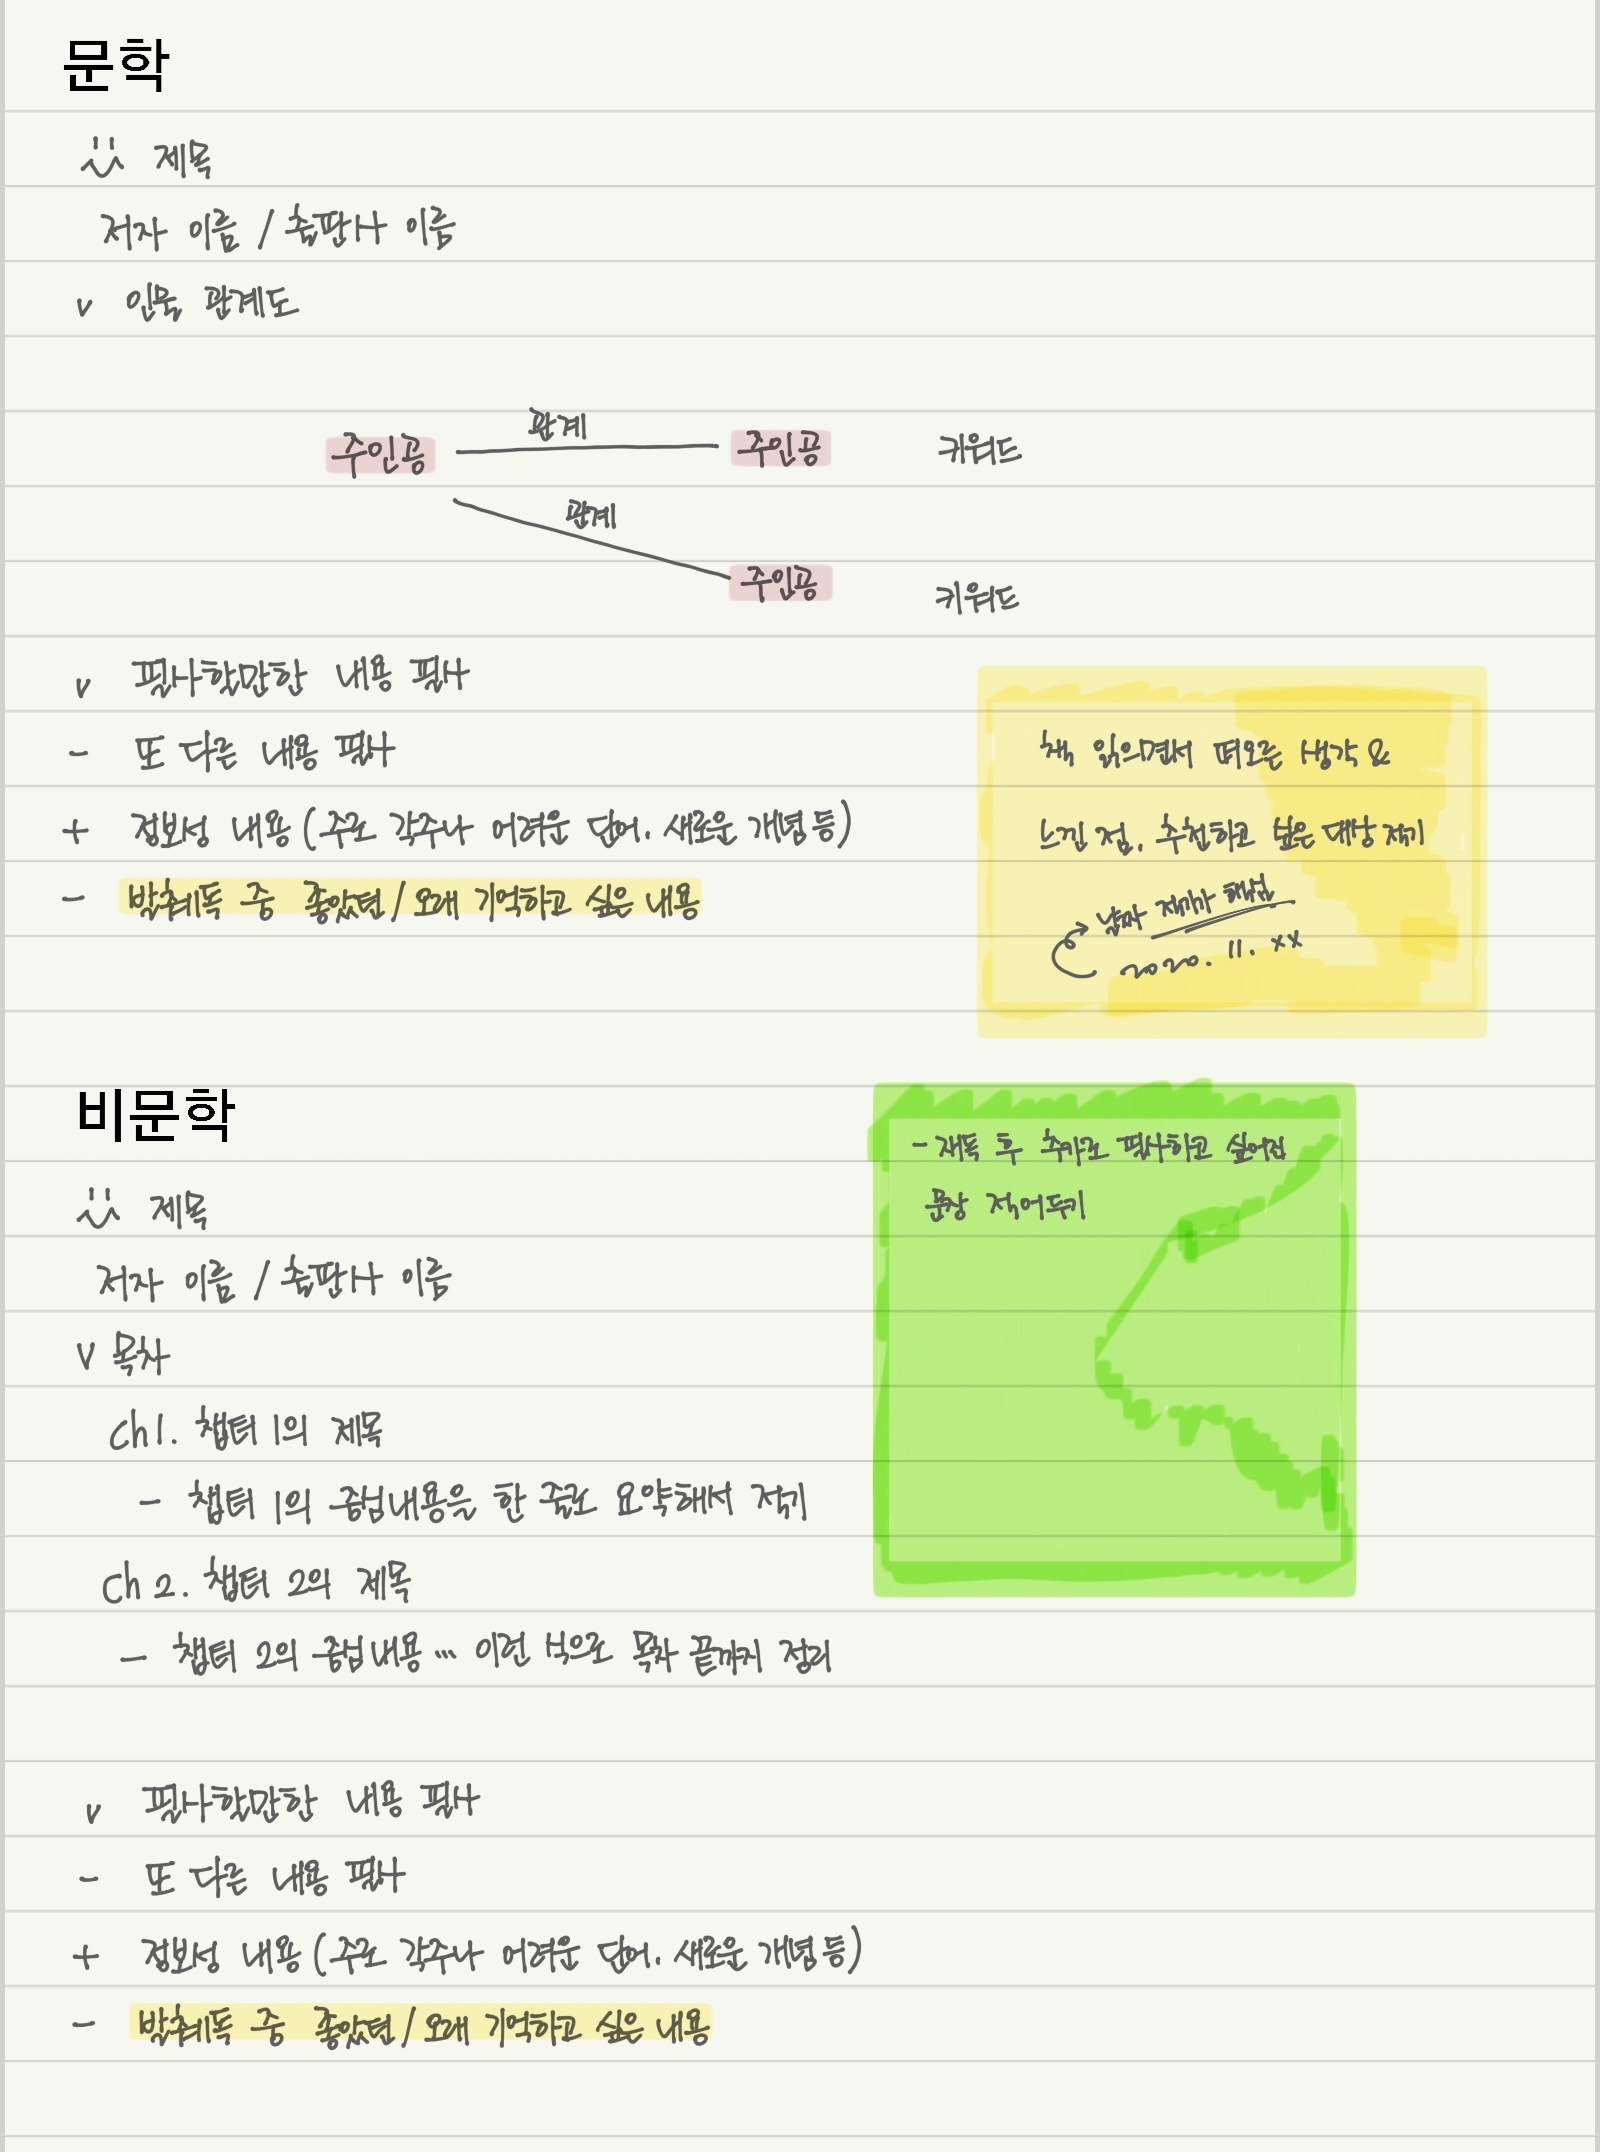 문학
제목
저자 이름 / 출판사 이름
v 인물 관계도
관계
주인공 주인공 키워드
관계
주인공 키워드
v 필사할만한 내용 필사
- 또 다른 내용 필사
+ 정보성 내용 (주로 각주나 어려운 단어. 새로운 개념 등)
- 발췌독 중 좋았던 / 오래 기억하고 싶은 내용
책 읽으면서 떠오른 생각 &
느낀 점, 추천하고 싶은 대상 적기
날짜 적기가 핵심
2020. 11. xx
비문학
- 재독 후 추가로 필사하고 싶어진
문장 적어두기
제목
저자 이름 / 출판사 이름
V 목차
Ch1. 챕터 1의 제목
- 챕터 1의 중심내용을 한 줄로 요약해서 적기
Ch 2. 챕터 2의 제목
- 챕터 2의 중심내용... 이런 식으로 목차 끝까지 정리
v 필사할만한 내용 필사
- 또 다른 내용 필사
+ 정보성 내용 (주로 각주나 어려운 단어. 새로운 개념 등)
- 발췌독 중 좋았던 / 오래 기억하고 싶은 내용